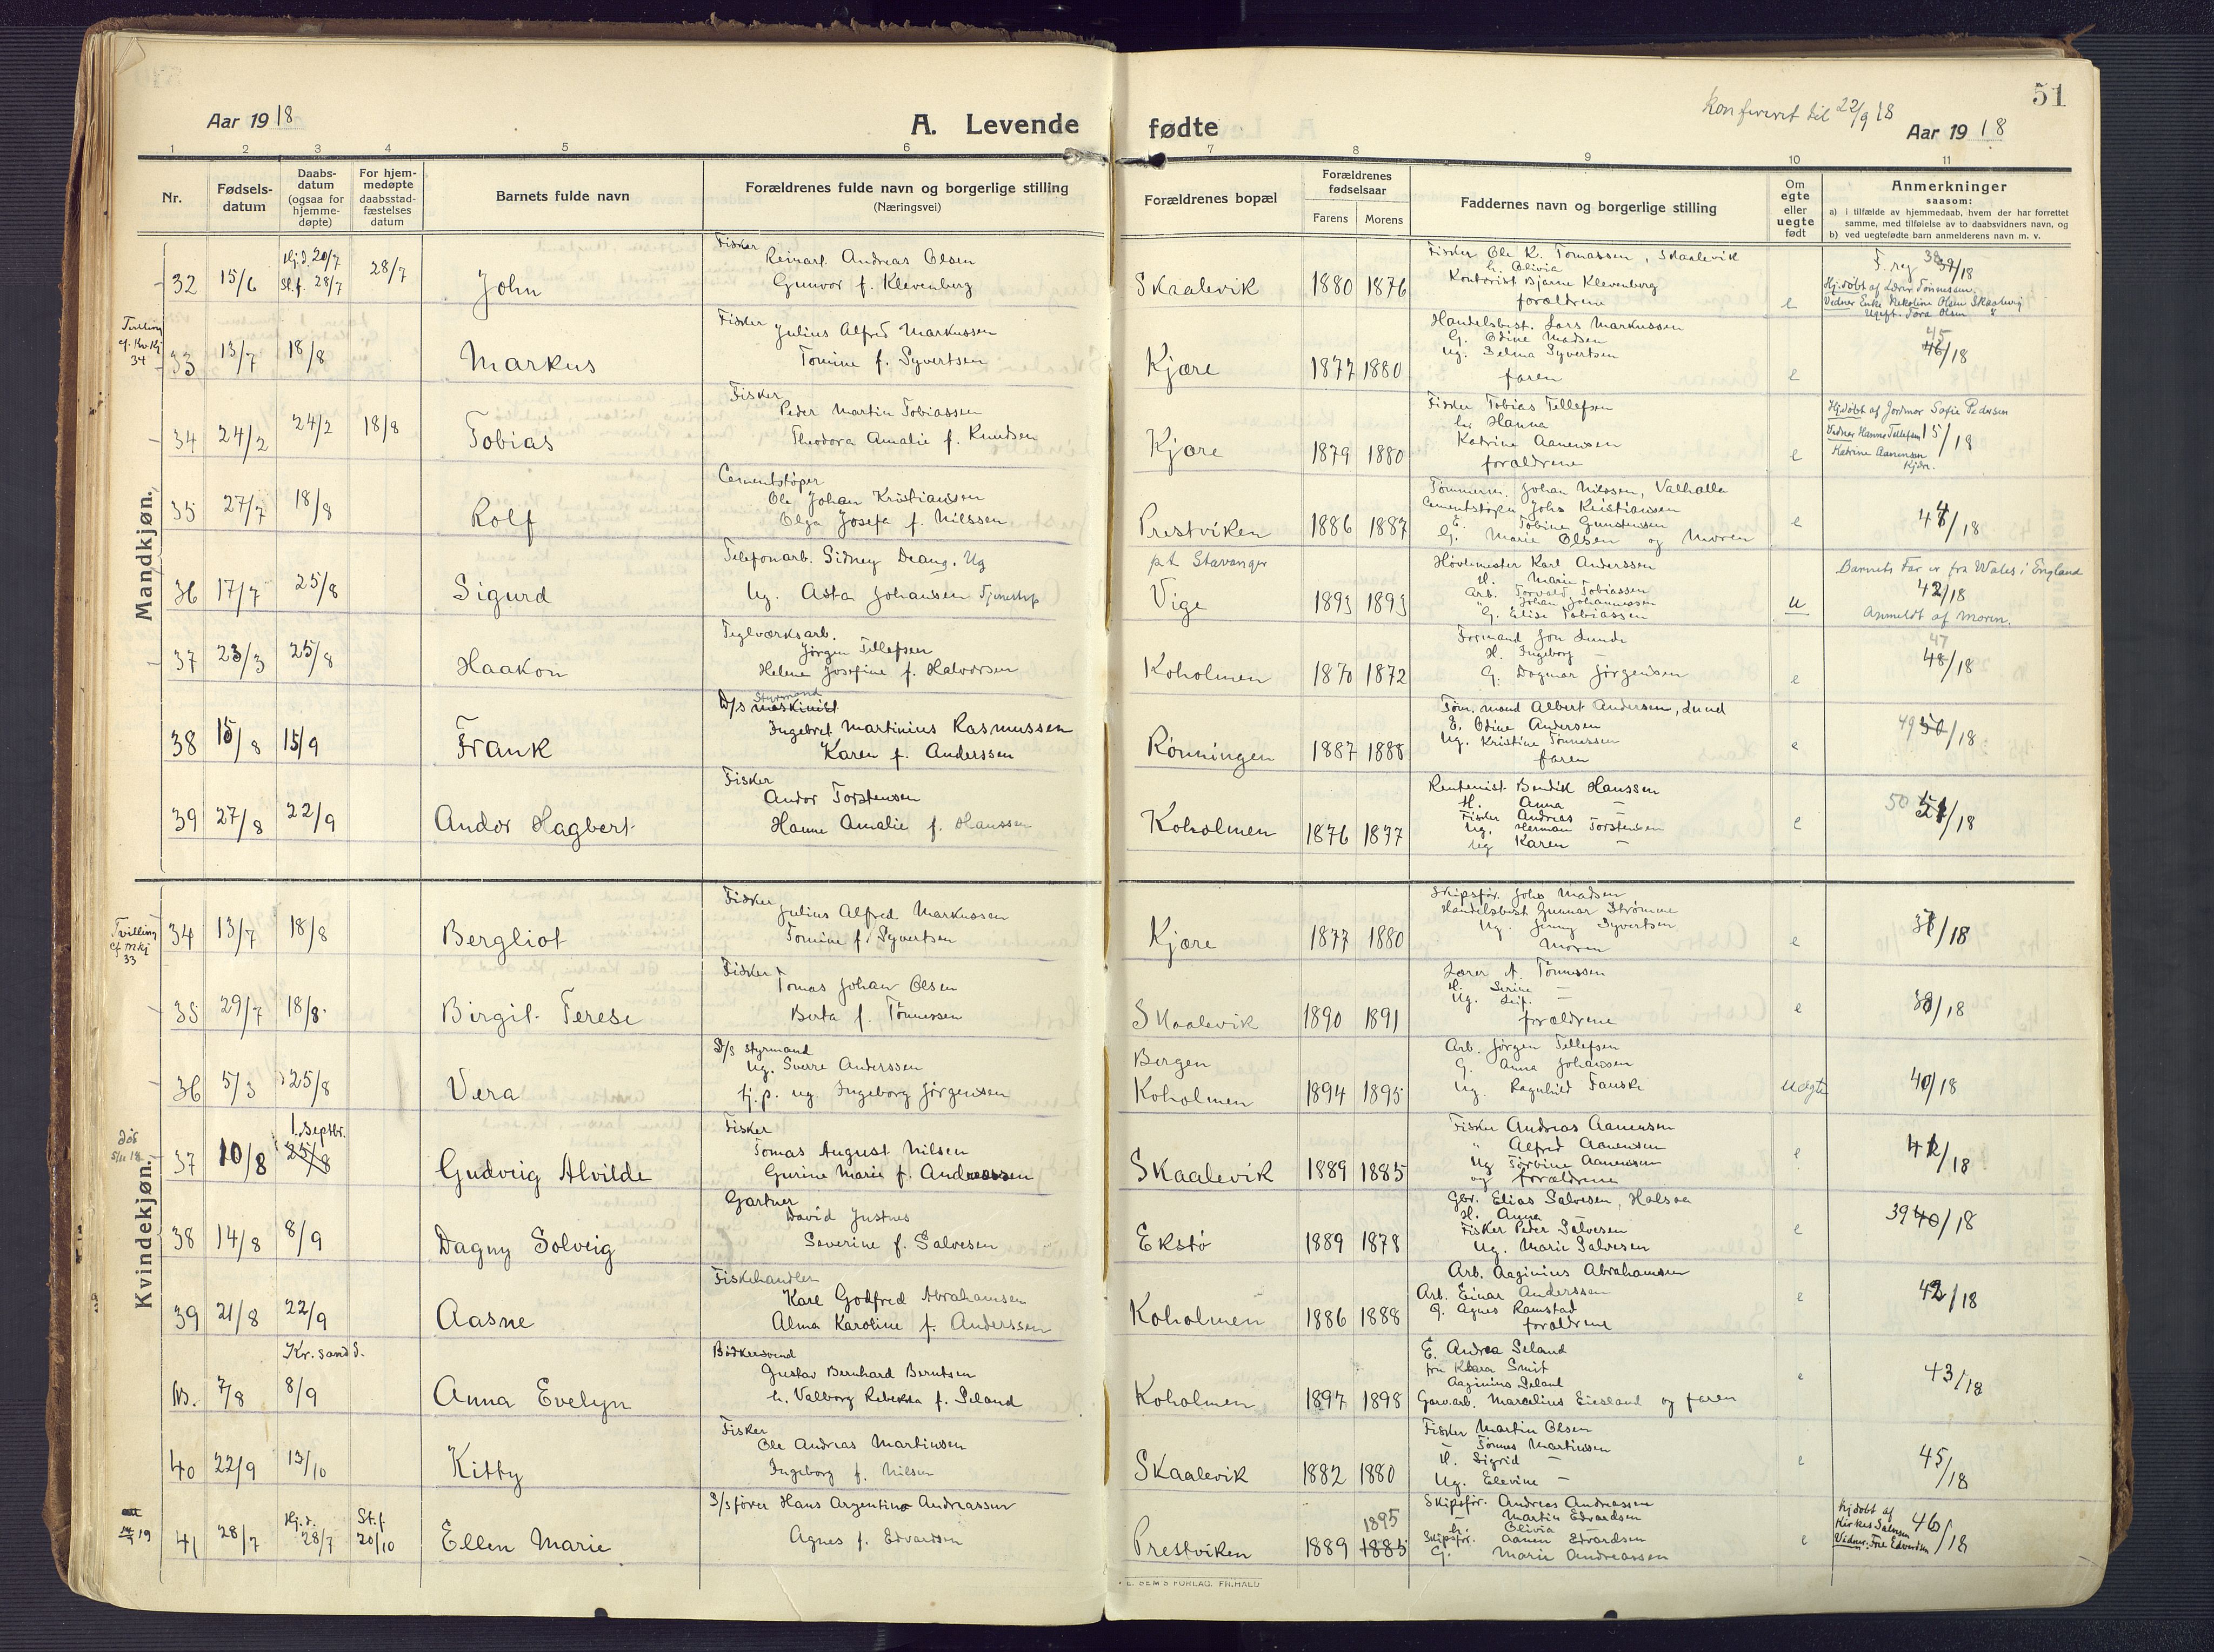 51
Konfereret til 22/9 18
Aar 1918
A. Levende fødte
Aar 1918
1 2 3 4 5 6 7 8 9 10 11
Nr.
Fødsels-
datum
Daabs-
datum
(ogsaa for
hjemme-
døpte)
For hjem-
medøpte
daabsstad-
fæstelses
datum
Barnets fulde navn
Forældrenes fulde navn og borgerlige stilling
(Næringsvei)
Forældrenes bopæl
Forældrenes
fødselsaar
Farens Morens
Faddernes navn og borgerlige stilling
Om
egte
eller
uegte
født
Anmerkninger
saasom:
a) i tilfælde av hjemmedaab, hvem der har forrettet
samme, med tilføielse av to daabsvidners navn, og
b) ved uegtefødte barn anmelderens navn m. v.
Mandkjøn.
32 15/6 Hj.d. 20/7 St.f. 28/7 28/7 John
Fisker
Reinart Andreas Olsen
Gunvor f. Klevenberg
Skaalevik 1880 1876
Fisker Ole K. Tomassen, Skaalevik
h. Olivia
Kontorist Bjarne Klevenberg
forældrene
e
F. reg 39/18
Hj.døbt af Lærer Tønnessen.
Vidner Enke Nekoline Olsen Skaalevig
Ugift. Tora Olsen "
Tvilling
cf. Kv.Kj
34
33 13/7 18/8 Markus
Fisker Julius Alfred Markussen
Tomine f. Syvertsen
Kjære 1877 1880
Handelsbest. Lars Markussen
G. Odine Madsen
Ug. Selma Syvertsen
faren
e
45
46/18
34 24/2 24/2 18/8 Tobias
Fisker
Peder Martin Tobiassen
Theodora Amalie f. Knudsen
Kjære 1879 1880
Fisker Tobias Tellefsen
h. Hanna
Katrine Aanensen
forældrene
e
Hj.døbt af Jordmor Sofie Pedersen
Vidner Hanna Tellefsen 15/18
Katrine Aanensen
Kjær.
35 27/7 18/8 Rolf
Cementstøper
Ole Johan Kristiansen
Olga Josefa f. Nilssen
Prestviken 1886 1887
Tømmerm. Johan Nilssen, Valhalla
Cementstøper Johs Kristiansen
E. Tobine Gunstensen
G. Marie Olsen og moren
e
47/18
36 17/7 25/8 Sigurd
Telefonarb. Sidney Deang. Ug
Ug. Asta Johansen Tjenestep
p.t. Stavanger
Vige 1893 1893
Høvlemester Karl Anderssen
H. Marie
Arb. Torvald Tobiassen
" Johan Johannessen
G. Elise Tobiassen
u
Barnets Far er fra Wales i England
42/18
Anmeldt af moren.
37 23/3 25/8 Haakon
Teglværksarb.
Jørgen Tellefsen
Helene Josefine f. Halvorsen
Koholmen 1870 1872
Formand Jon Lunde
H. Ingeborg —
G. Dagmar Jørgensen
e
47
48/18
38 15/8 15/9 Frank
Styrmand
D/s maskinist
Ingebret Martinius Rasmussen
Karen f. Anderssen
Rønningen 1887 1888
Tøm.mand Albert Andersen, Lund
E. Odine Andersen
Ug. Kristine Tønnessen
faren
e
49 50/18
39 27/8 22/9 Andor Hagbert
Fisker
Andor Torstensen
Hanne Amalie f. Hanssen
Koholmen 1876 1877
Rentenist Bendik Hanssen
H. Anna —
Fisker Andreas —
Ug. Herman Torstensen
Ug Karen —
e
50 51/18
Kvindekjøn.
Tvilling
cf. M.kj
33
34 13/7 18/8 Bergliot
Fisker
Julius Alfred Markussen
Tomine f. Syvertsen
Kjære 1877 1880
Skipsfør. Johs Madsen
Handelsbest Gunnar Strømme
Ug. Jenny Syvertsen
Moren
e
37/18
35 29/7 18/8 Birgit Terese
Fisker
Tomas Johan Olsen
Berta f. Tønnessen
Skaalevik 1890 1891
Lærer A. Tønnessen
H. Serine —
Ug. Leif. —
forældrene
e
38/18
36 5/3 25/8 Vera
D/s styrmand
Ug. Sverre Anderssen
tj.p. ug. Ingeborg Jørgensen
Bergen
Koholmen 1894 1895
Arb. Jørgen Tellefsen
G. Anna Johanssen
Ug. Ragnhild Fauske
uægte
40/18
død
5/11 18
37 10/8 1. Septbr. 25/8 Gudveig Alvilde
Fisker
Tomas August Nilsen
Gurine Marie f. Andreassen
Skaalevik 1889 1885
Fisker Andreas Aanensen
" Alfred Aanensen
Ug Torbine Aanensen
og forældrene
e
41/18
38 14/8 8/9 Dagny Solveig
Gartner
David Justnes
Severine f. Salvesen
Ekstø 1889 1878
Gbr. Elias Salvesen, Halsaa
H. Anna
Fisker Peder Salvesen
Ug. Marie Salvesen
e
39 40/18
39 21/8 22/9 Aasne
Fiskehandler
Karl Godfred Abrahamsen
Alma Karoline f. Anderssen
Koholmen 1886 1888
Arb. Aaginius Abrahamsen
Arb. Einar Anderssen
G. Agnes Ramstad
forældrene
e
42/18
Kr. sand D.
Nb. 7/8 8/9 Anna Evelyn
Bødkersvend
Gustav Bernhard Berntsen
h. Valborg Rebekka f. Seland
Koholmen 1897 1898
E. Andrea Seland
fru Klara Smit
Aaginius Seland
Garvarb. Marcelius Eiesland og faren
e
43/18
40 22/9 13/10 Kitty
Fisker
Ole Andreas Martinsen
Ingeborg f. Nilsen
Skaalevik 1882 1880
Fisker Martin Olsen
— Tønnes Martinssen
H. Sigrid —
Ug. Elevine —
e
45/18
41 28/7 Hj.d. 28/7 St.f 20/10 Ellen Marie
D/s fører Hans Argentino Andreassen
Agnes f. Edvardsen
Prestviken 1889 1885 1895
Skipsfør. Andreas Andreassen
— Martin Edvardsen
h. Olivia
Skipsfør. Aanen Edvardsen
G. Marie Andreassen
e
Hjdøbt af
46/18